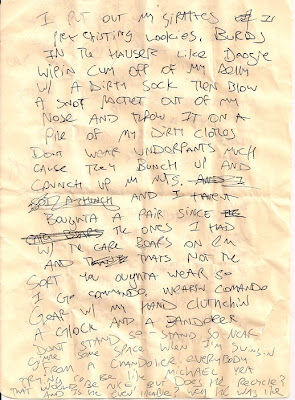 I PUT OUT MY
PRE EXISTING
IN THE HAUSER LIKE DOOGIE
WIPIN CUM OFF OF MY BELLY
W/ A DIRTY SOCK THEN BLOW
A SNOT ROCKET OUT OF MY
NOSE AND THROW IT ON A
PILE OF MY DIRTY CLOTHES
DONT WEAR UNDERPANTS MUCH
CAUSE THEY BUNCH UP AND
CRUNCH UP M NUTS. AND I
AND I HAVENT
BOUGHTA A PAIR SINCE
THE ONES I HAD
W/ THE CARE BEARS ON EM
AND THATS NOT THE
SORT YOU OUGHTA WEAR SO
I GO COMMANDO, WEARIN COMANDO
GEAR W/ MY HAND CLUTCHIN
A GLOCK AND A BANDOLEER
DONT STAND SO - STAND SO NEAR
GIMME SOME SPACE WHEN I'M SWINGIN
FROM A CHANDELIER EVERYBODY
TRYING TO BE LIKE MICHAEL YEA
THAT WOULD BE NICE BUT DOES HE RECYCLE?
AND IS HE EVEN WHY HE